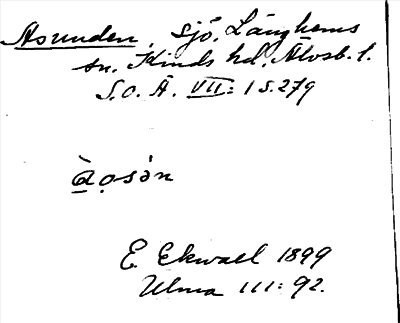 Åsunden, sjö. Länghems
sn. Kinds hd. Älvsb. l.
S.O.Ä. VII:1 s.279
E. Ekwall 1899
Ulma 111:92.